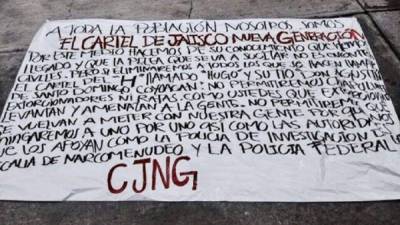 A TODA LA POBLACIÓN NOSOTROS SOMOS
EL CARTEL DE JALISCO NUEVA GENERACIÓN
POR ESTE MEDIO HACEMOS DE SU CONOCIMIENTO QUE HEMOS
LLEGADO Y QUE LA PELEA QUE SE VA A SUCITAR NO ES
CIVILES. PERO SI ELIMINAREMOS A TODOS LOS QUE SE HACEN LLAMAR
EL CARTEL DEL LLAMADO "HUGO" Y SU TIO DON AGUSTIN
DE SANTO DOMINGO COYOACAN! NO PERMITIREMOS
EXTORCIONADORES Y RATAS COMO USTEDES QUE EXTORCIONAN
LEVANTAN Y AMENAZAN A LA GENTE. NO PERMITIREMOS QUE
SE VUELVAN A METER CON NUESTRA GENTE POR QUE
VENDREMOS A UNO POR UNO ASI COMO LAS AUTORIDADES
QUE LOS APOYAN COMO LA POLICIA DE INVESTIGACION
FISCALIA DE NARCOMENUDEO Y LA POLICIA FEDERAL
CJNG